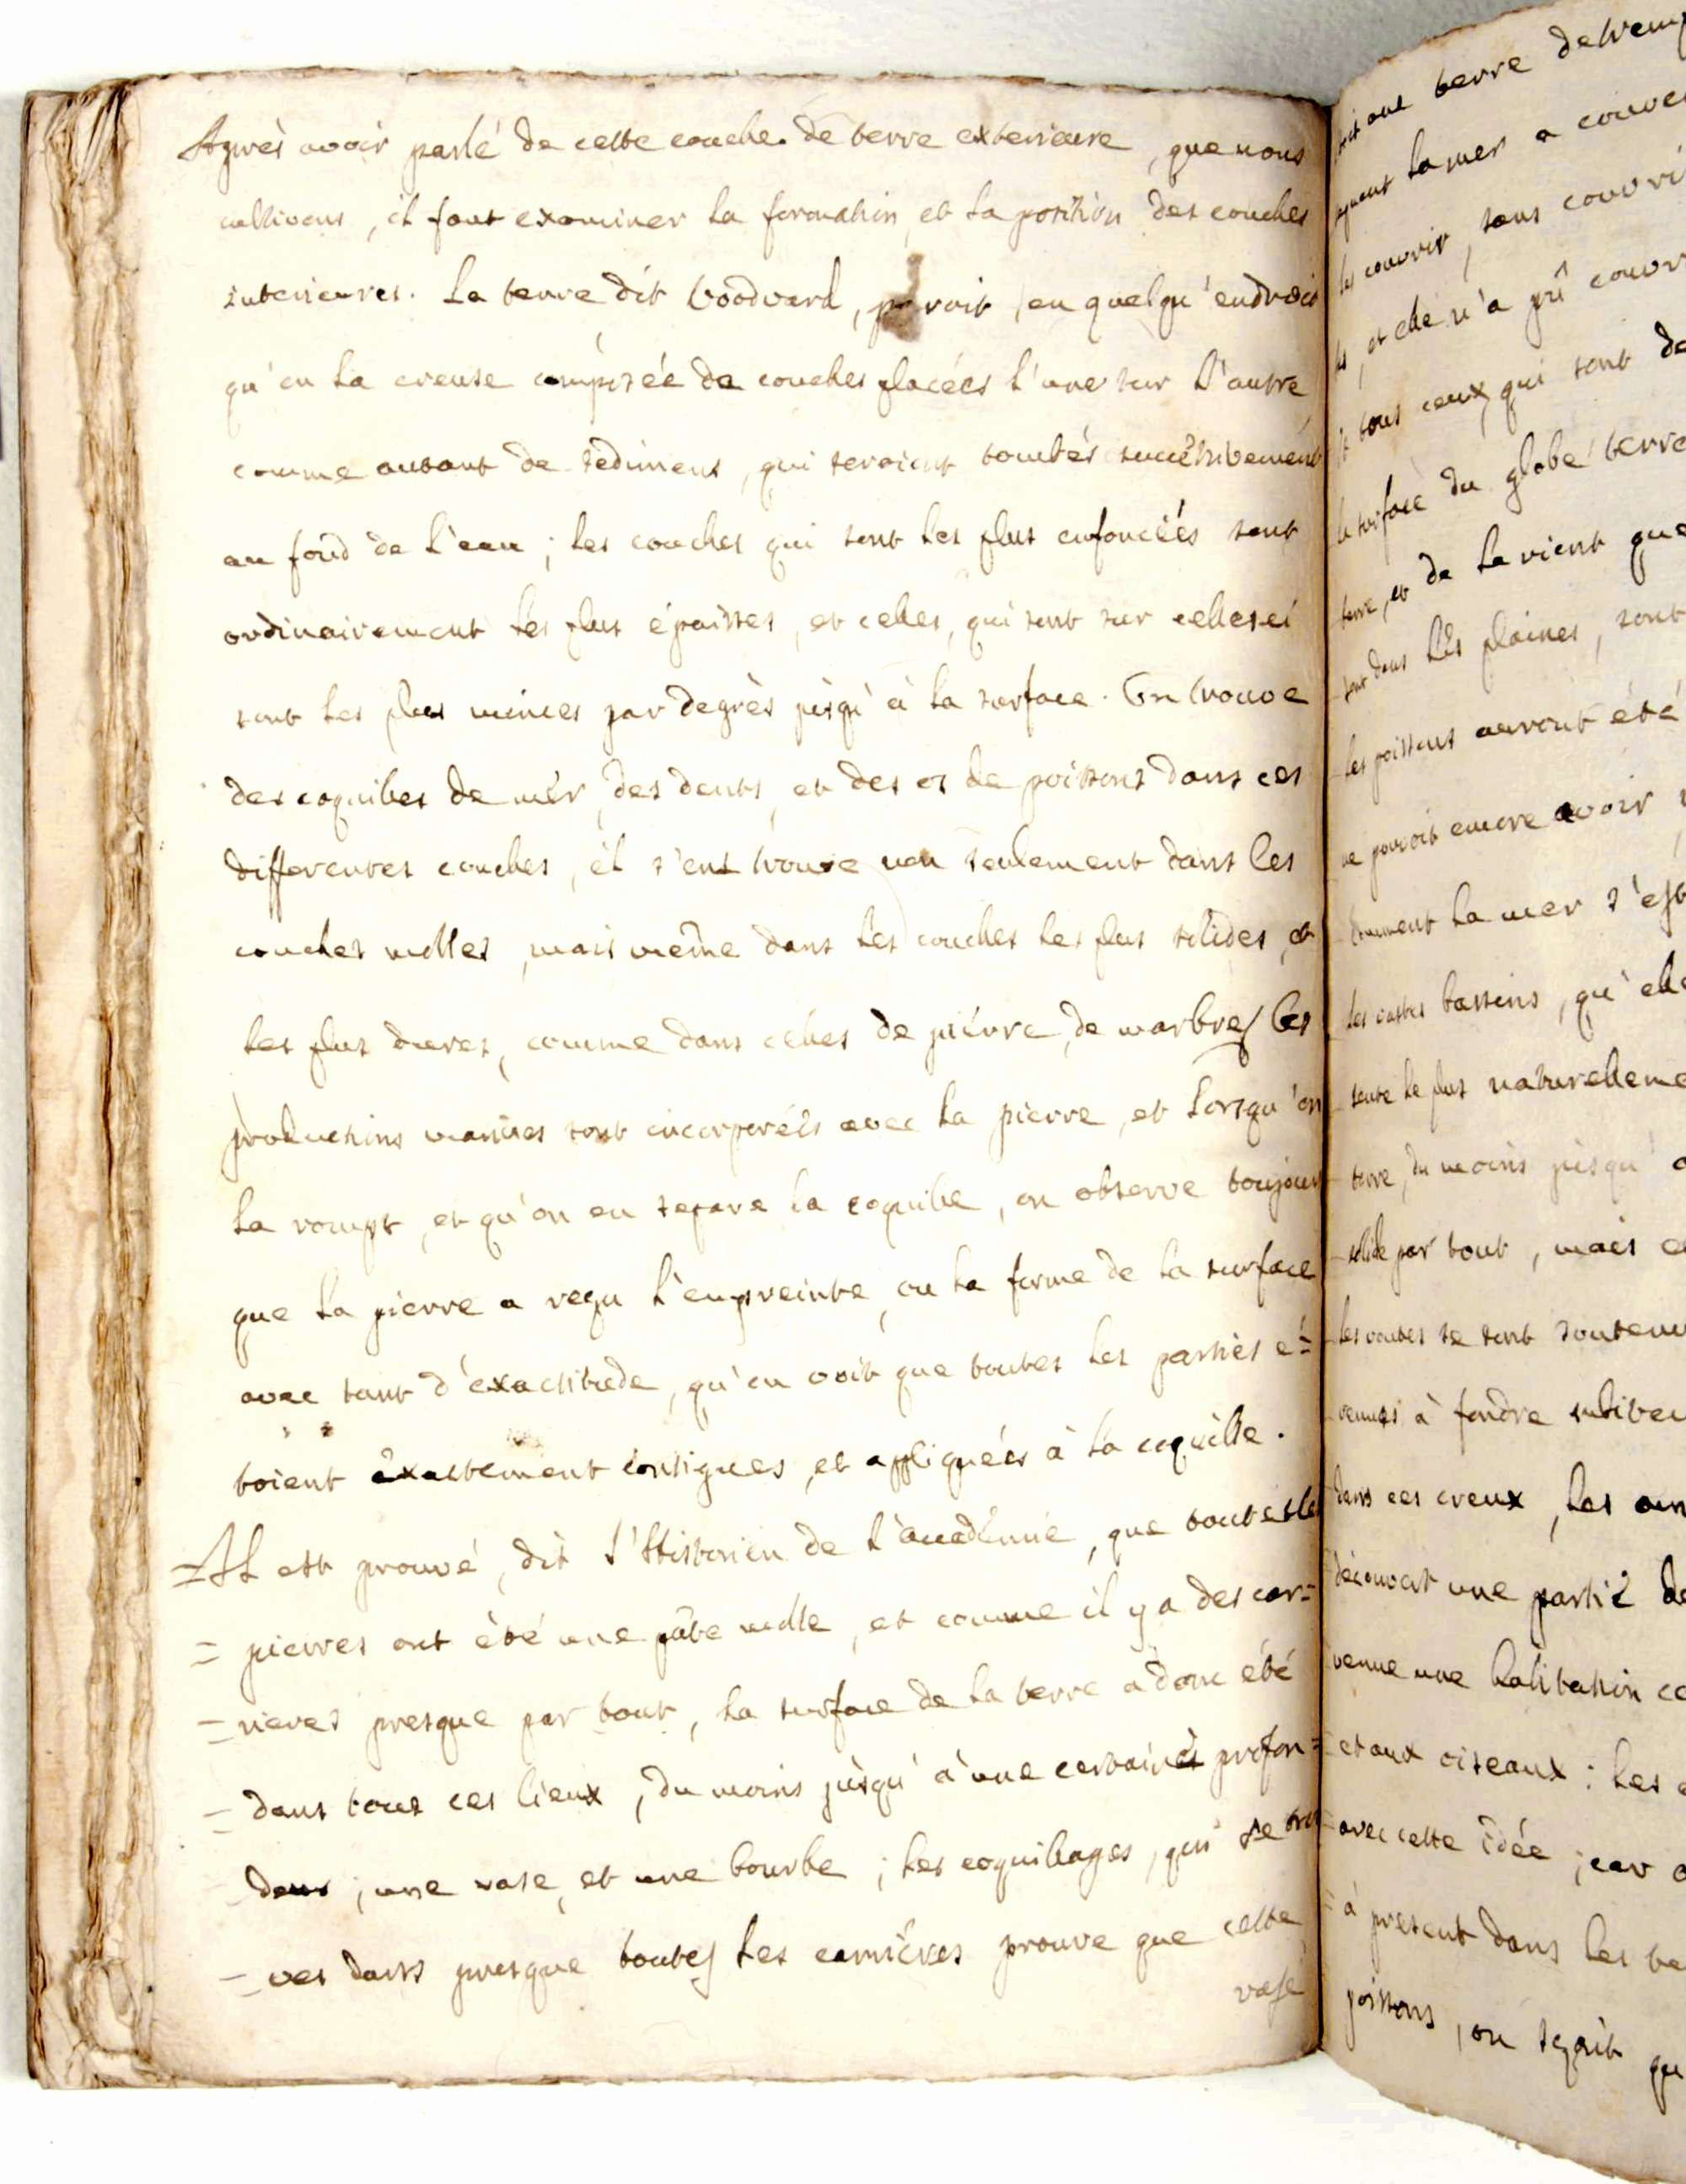 Après avoir parlé de cette couche de terre exterieure, que nous
cultivons, il faut examiner la formation, et la position des couches
interieures. La terre dit Woodvard, paroit, en quelqu'endroit
qu'on la creuse composée de couches placées l'une sur l'autre
comme autant de sedimens, qui seroient tombés successivement
au fond de l'eau ; les couches qui sont les plus enfoncées sont
ordinairement les plus épaisses, et celles, qui sont sur celles ci
sont les plus minces par degrès jusqu'à la surface. On trouve
des coquilles de mér, des dents, et des os de poissons dans ces
differentes couches, il s'en trouve non seulement dans les
couches molles, mais même dans les couches les plus solides, et
les plus dures, comme dans celles de pierre, de marbre, ces
productions marines sont incorporées avec la pierre, et lorsqu'on
la rompt, et qu'on en separe la coquille, on observe toujours
que la pierre a reçu l'empreinte, ou la forme de la surface
avec tant d'exactitude, qu'on voit que toutes les parties é=
toient exactement contigues, et appliquées à la coquille.
=Il est prouvé, dit l'Historien de l'academie, que toutes les
= pierres ont été une pâte molle, et comme il y a des car=
= rieres presque par tout, la surface de la terre a donc été
= dans tous ces lieux, du moins jusqu'à une certaine profon=
= deur ; une vase, et une bourbe ; les coquillages, qui se trou
= ves dans presque toutes les carrières prouve que cette
vase
soit une terre detremp
quent la mer a couve
les couvrir, sans couvri
et elle n'a pû couvr
tous ceux, qui sont de
la surface du globe terre
terre, et de la vient que
sont dans les plaines, sont
les poissons auront été
ne pouvoit encore avoir
comment la mer s'est
les vastes bassins, qu'elle
sente le plus naturelleme
terre, du moins jusqu'a
solide par tout, mais
les voutes se sont soutenu
venues à fondre subitem
dans ces creux, les
découvert une partie de
venue une habitation co
et aux oiseaux : les
avec cette idée ; car
à present dans les
poissons, on sçait qu